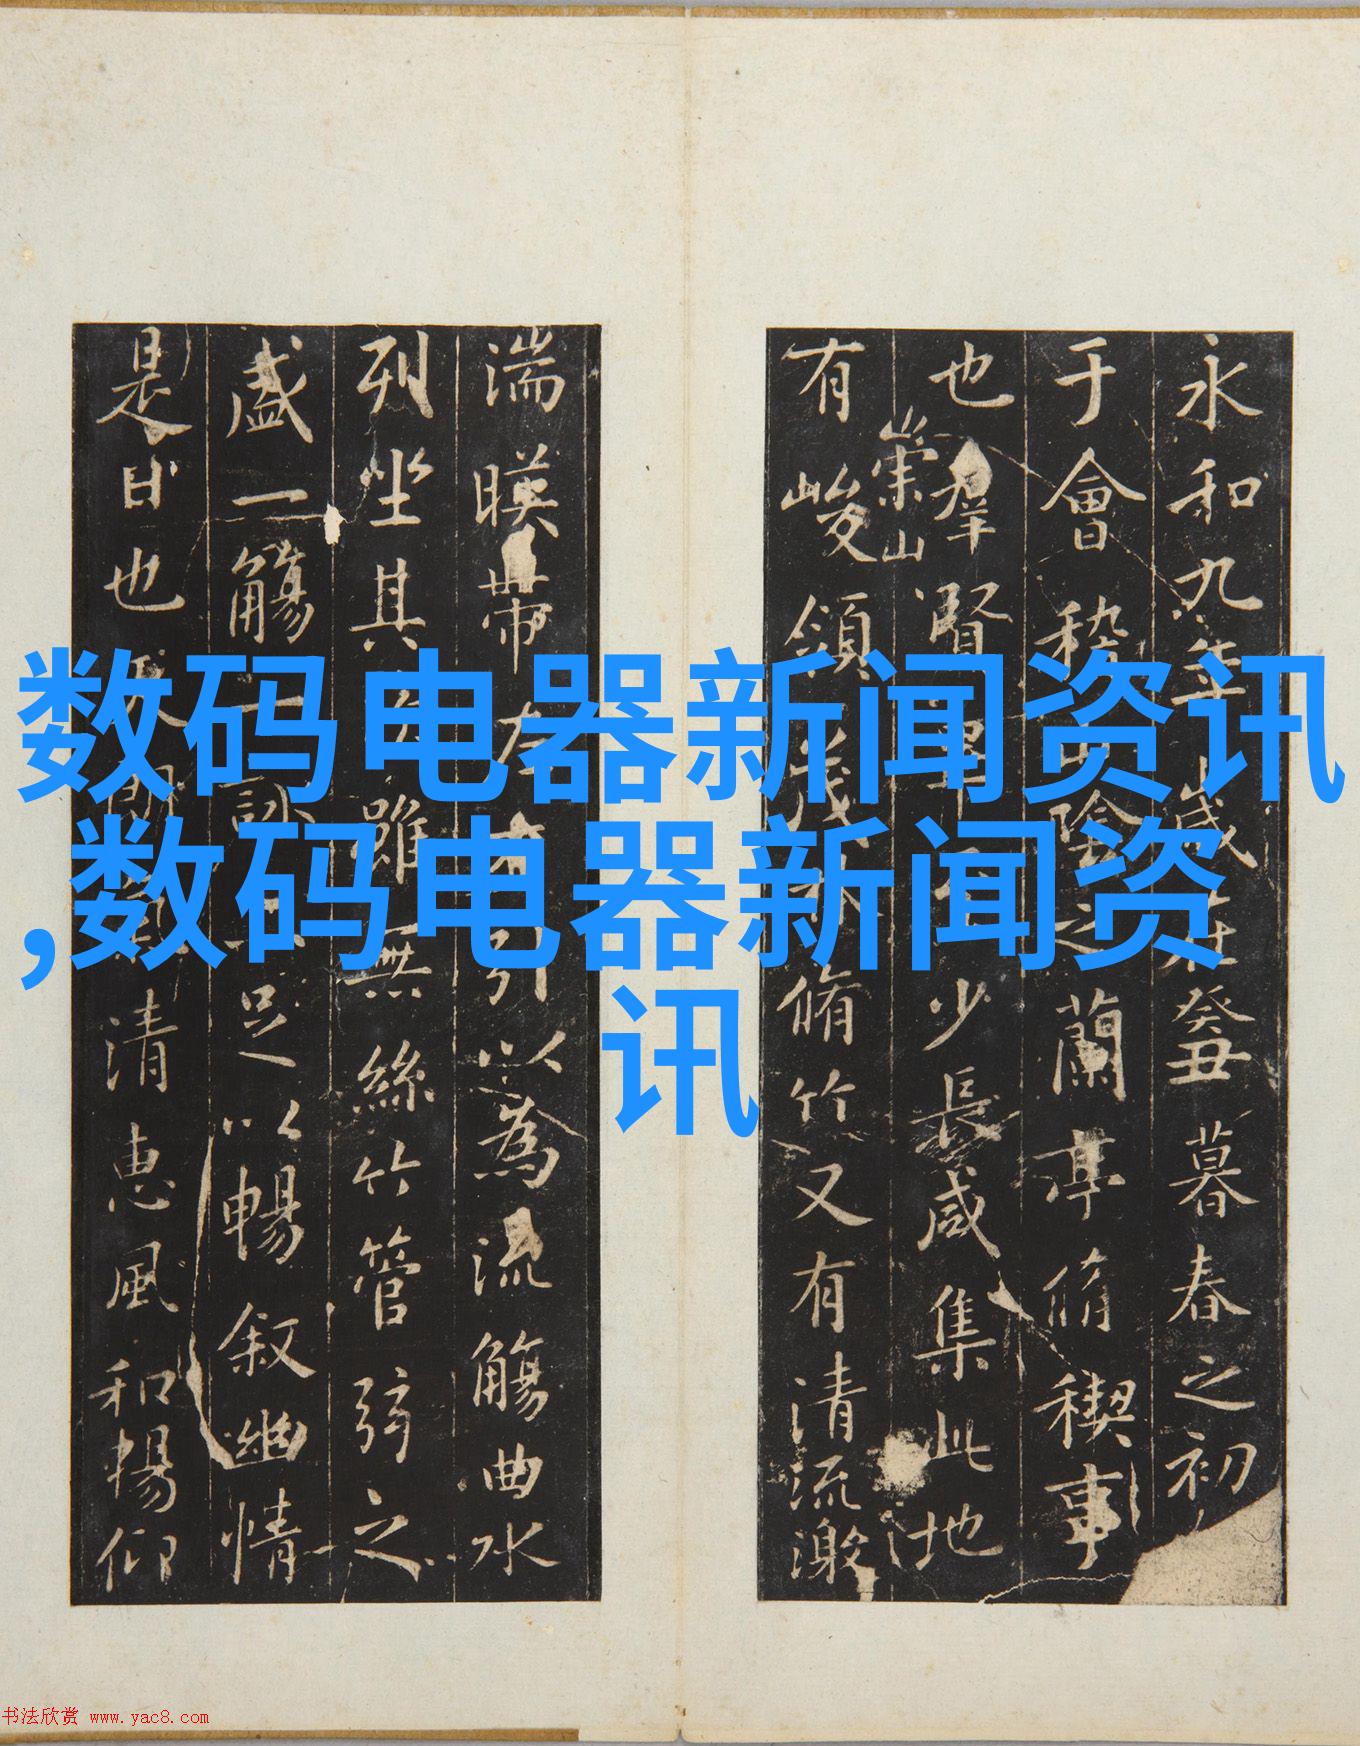 永和九年歲在癸丑暮春之初
于會稽山陰之蘭亭脩稧事
也羣賢畢少長咸集此地
崇山
有峻領茂林脩竹又有清流激
湍暎帶左右引以為流觴曲水
列坐其次雖無絲竹管弦之
盛一觴一詠足以暢叙幽情
是日也天朗氣清惠風和暢仰
数码电器新闻资讯
,数码电器新闻资
讯
书法欣赏 www.yac8.com